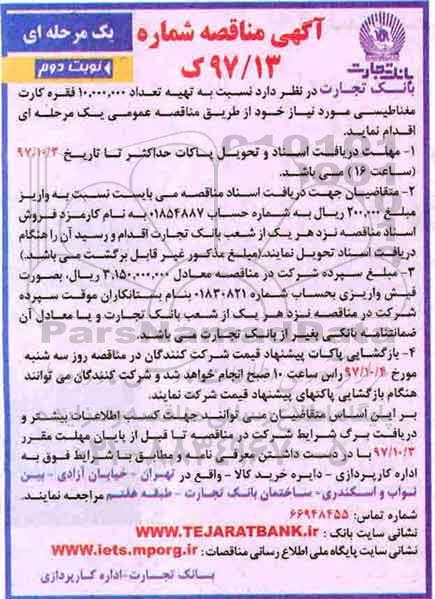 آگهی مناقصه شماره
۹۷/۱۳ ک
یک مرحله ای
نوبت دوم
بانک تجارت
بانک تجارت در نظر دارد نسبت به تهیه تعداد ۱۰,۰۰۰,۰۰۰ فقره کارت
مغناطیسی مورد نیاز خود از طریق مناقصه عمومی یک مرحله ای
اقدام نماید.
۱- مهلت دریافت اسناد و تحویل پاکات حداکثر تا تاریخ ۹۷/۱۰/۳
(ساعت ۱۶) می باشد.
۲- متقاضیان جهت دریافت اسناد مناقصه می بایست نسبت به واریز
مبلغ ۲۰۰,۰۰۰ ریال به شماره حساب ۰۱۸۵۴۸۸۷ به نام کارمزد فروش
اسناد مناقصه نزد هر یک از شعب بانک تجارت اقدام و رسید آن را هنگام
دریافت اسناد تحویل نمایند.(مبلغ مذکور غیر قابل برگشت می باشد.)
۳- مبلغ سپرده شرکت در مناقصه معادل ۳,۱۵۰,۰۰۰,۰۰۰ ریال، بصورت
فیش واریزی بحساب شماره ۰۱۸۳۰۸۲۱ بنام بستانکاران موقت سپرده
شرکت در مناقصه نزد هر یک از شعب بانک تجارت و یا معادل آن
ضمانتنامه بانکی بغیر از بانک تجارت می باشد.
۴- بازگشایی پاکات پیشنهاد قیمت شرکت کنندگان در مناقصه روز سه شنبه
مورخ ۹۷/۱۰/۴ راس ساعت ۱۰ صبح انجام خواهد شد و شرکت کنندگان می توانند
هنگام بازگشایی پاکتهای پیشنهاد قیمت شرکت نمایند.
بر این اساس متقاضیان می توانند جهت کسب اطلاعات بیشتر و
دریافت برگ شرایط شرکت در مناقصه تا قبل از پایان مهلت مقرر
۹۷/۱۰/۳ با در دست داشتن معرفی نامه و مطابق با شرایط فوق به
اداره کارپردازی - دایره خرید کالا - واقع در تهران - خیابان آزادی - بین
نواب و اسکندری - ساختمان بانک تجارت - طبقه هفتم مراجعه نمایند.
شماره تماس: ۶۶۹۴۸۴۵۵
نشانی سایت بانک : WWW.TEJARATBANK.ir
نشانی سایت پایگاه ملی اطلاع رسانی مناقصات : www.iets.mporg.ir
بانک تجارت-اداره کارپردازی
ParsNamadData